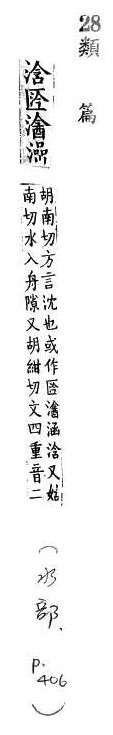 28
類篇
浛匼㵅澏
胡南切方言沈也或作匼㵅涵浛又姑
南切水入舟隙又胡紺切文四重音二
(水部.
p.406)